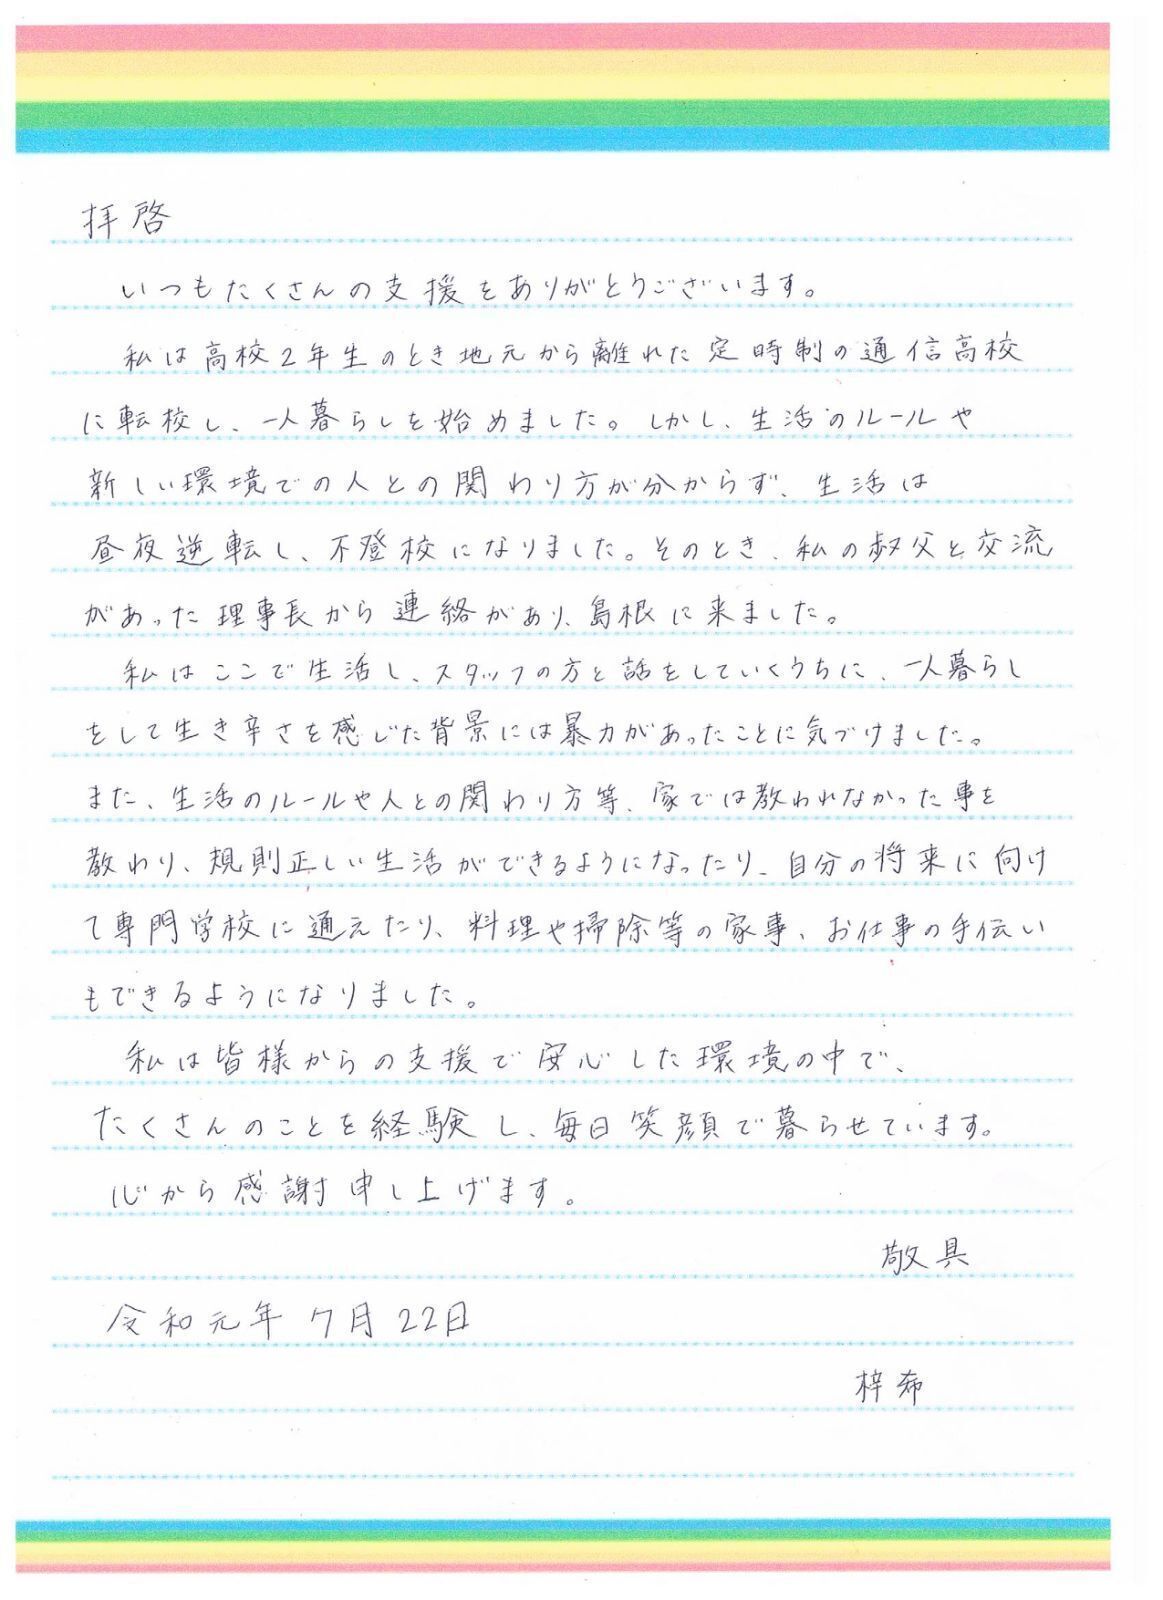 拝啓
いつもたくさんの支援をありがとうございます。
私は高校2年生のとき地元から離れた定時制の通信高校
に転校し、一人暮らしを始めました。しかし、生活のルールや
新しい環境での人との関わり方が分からず、生活は
昼夜逆転し、不登校になりました。そのとき、私の叔父と交流
があった理事長から連絡があり、島根に来ました。
私はここで生活し、スタッフの方と話をしていくうちに、一人暮らし
をして生き辛さを感じた背景には暴力があったことに気づけました。
また、生活のルールや人との関わり方等、家では教われなかった事を
教わり、規則正しい生活ができるようになったり、自分の将来に向け
て専門学校に通えたり、料理や掃除等の家事、お仕事の手伝い
もできるようになりました。
私は皆様からの支援で安心した環境の中で、
たくさんのことを経験し、毎日笑顔で暮らせています。
心から感謝申し上げます。
敬具
令和元年 7月22日
梓希